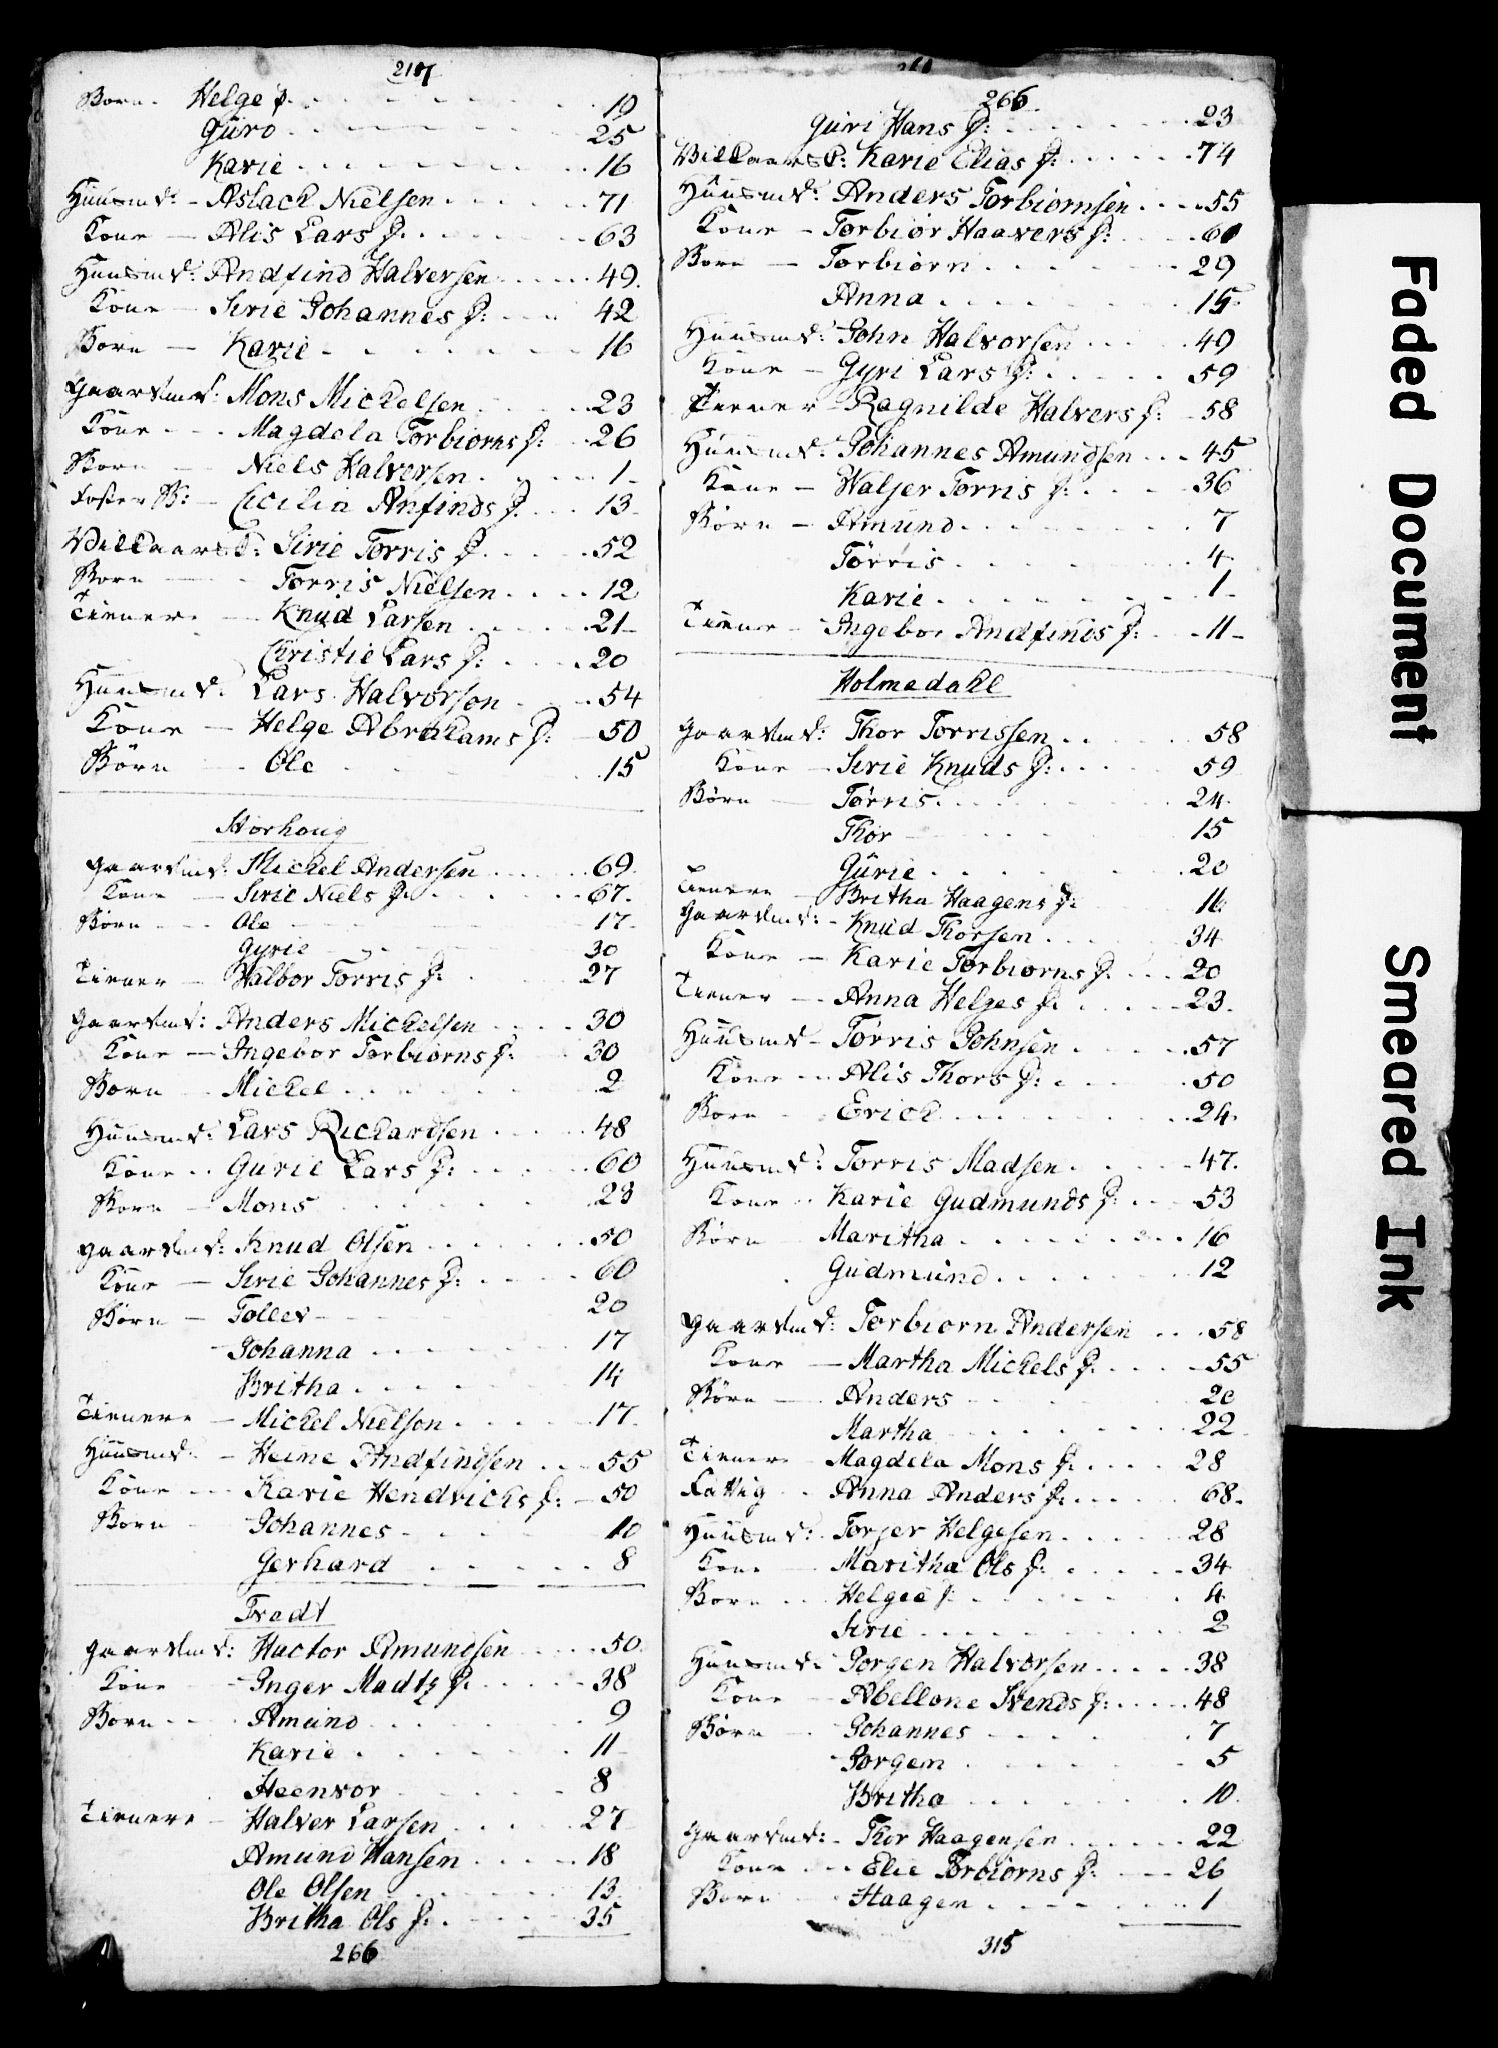 Born. Helge D. 19
Guro 25
Karie 16
Huusmd: Aslack Nielsen 71
Kone Alis Lars D. 63
Huusmd: Andfind Halversen 49.
Kone Sirie Johannes D: 42
Born Karie 16
Gaardmd: Mons Mickelsen 23
Kone Magdela Torbiorns D: 26
Born Niels Halversen 1
Foster B: Cecilia Anfinds D 13
Vilkaars K: Sirie Torris D 52
Born Torris Nielsen 12
Tienere Knud Larsen 21
Christie Lars D: 20
Huusmd. Lars Halvorson 54
Kone Helge Abrahams D: 50
Børn Ole 15
Storhoug
Gaardmd: Mickel Andersen 69.
Kone Sirie Niels D. 67.
Børn Ole 17
Gyrie 30
Tiener Walbor Torris D: 27
Gaardmd: Anders Mickelsen 30
Kone Ingebor Torbiorns D: 30
Born Mickel 2
Huusmd: Lars Rickardsen 48
Kone Gurie Lars D: 60
Born Mons 23
Gaardmd: Knud Olsen 50
Kone Sirie Johannes D: 60
Børn Tollev 20
Johanna 17
Britha 14
Tienere Mickel Nielson 17
Huusmd: Heine Andfindsen 55
Kone Karie Hendricks D: 50
Born Johannes 10
Gerhard 8
Tredt
Gaardmd: Hactor Amundsen 50
Kone Inger Madtz D. 38
Born Amund 9
Karie 11
Heenvor 8
Tienere Halver Larsen 27
Amund Hansen 18
Ole Olsen 13
Britha Ols D: 35
266
266
Guri Hans D: 23
Vilkaars K: Karie Elias D: 74
Huusmd: Anders Torbiornsen 55
Kone Torbior Haavers D: 60
Born Torbiorn 29
Anna 15
Huusmd: John Halvorsen 49
Kone Gyri Lars D: 59
Tiener Ragnilde Halvers D: 58
Huusmd: Johannes Amundsen 45
Kone Walser Torris D: 36
Børn Amund 7
Törris 4
Karie 1
Tiener Ingebor Andfinds D: 11
Holmedahl
Gaardmd: Thor Torrissen 58
Kone Sirie Knuds D: 59
Børn Törris 24
Thor 15
Gurie 20
Tienere Britha Haagens D: 16
Gaardmd: Knud Thorsen 34
Kone Karie Torbiorns D. 20
Tiener Anna Helges D. 23
Huusmd Törris Johnsen 57
Kone Alis Thors D: 50
Born Erick 24
Huusmd: Torris Madsen 47.
Kone Karie Gudmunds D: 53
Børn Maritha 16
Gudmund 12
Gaardmd: Torbiorn Andersen 58
Kone Martha Mickels D. 55
Børn Anders 20
Martha 22
Tienere Magdela Mons D. 28
Fattig Anna Anders D. 68
Huusmd: Torger Helgesen 28
Kone Maritha Ols D. 34
Born Helgee D: 4
Sirie 2
Huusmd. Jorgen Halvorsen 38
Kone Abellone Svends D: 48
Børn Johannes 7
Jorgen 5
Britha 10
Gaardmd: Thor Haagensen 22
Kone Elie Torbiorns D: 26
Born Haagen 1
315
Faded Document
Smeared Ink